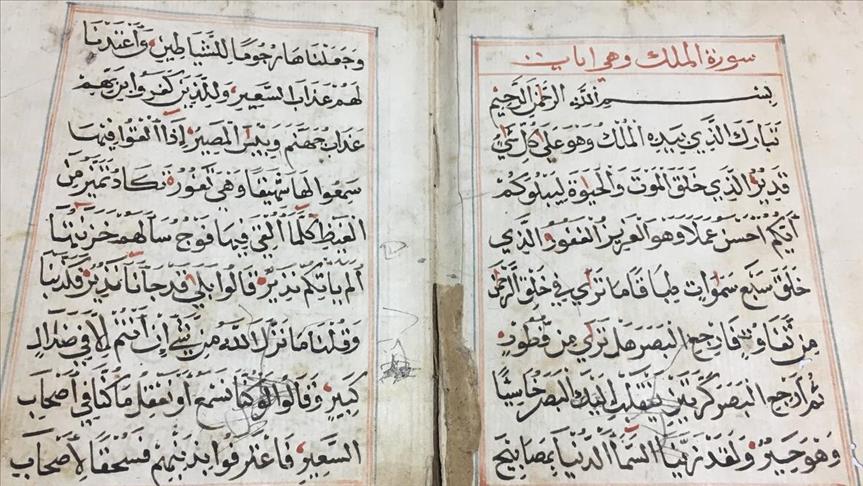 سورة الملك وهي ايات
بسم الله الرحمن الرحيم
تبارك الذي بيده الملك وهو على كل شئ
قدير الذي خلق الموت والحيوة ليبلوكم
أيكم احسن عملا وهو العزيز الغفور الذي
خلق سبع سموات طباقا ما ترى في خلق الرحمن
من تفاوت فارجع البصر هل ترى من فطور
ثم ارجع البصر كرتين ينقلب اليك البصر خاسئا
وهو حسير ولقد زينا السماء الدنيا بمصابيح
وجعلناها رجوما للشياطين واعتدنا
لهم عذاب السعير وللذين كفروا بربهم
عذاب جهنم وبئس المصير إذا القوا فيها
سمعوا لها شهيقا وهي تفور تكاد تميز من
الغيظ كلما القي فيها فوج سألهم خزنتها
ألم ياتكم نذير قالوا بلى قد جاءنا نذير فكذبنا
وقلنا ما نزل الله من شئ إن أنتم إلا في ضلال
كبير وقالوا لو كنا نسمع أو نعقل ما كنا في أصحاب
السعير فاعترفوا بذنبهم فسحقا لأصحاب